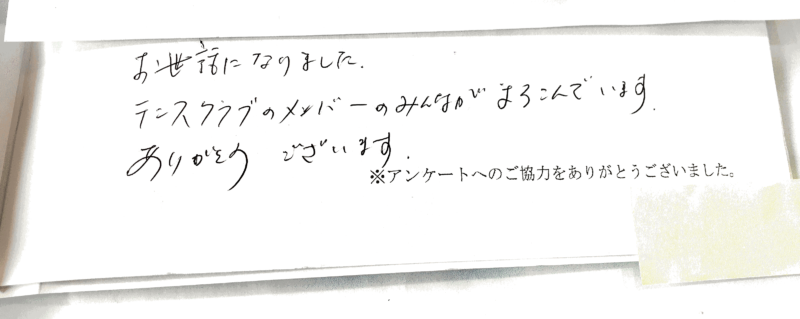 お世話になりました.
テニスクラブのメンバーのみんながよろこんでいます.
ありがとう ございます.
※アンケートへのご協力をありがとうございました。